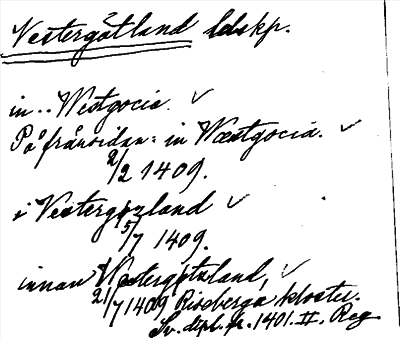 Vestergötland ldskp.
in .. Westgocia. ✓
På frånsidan: in Westgocia. ✓
2/2 1409.
i Vestergøzland ✓
5/7 1409.
innan Westergøtzland, ✓
21/7 1409 Riseberga kloster.
Sv. dipl. fr. 1401. II. Reg